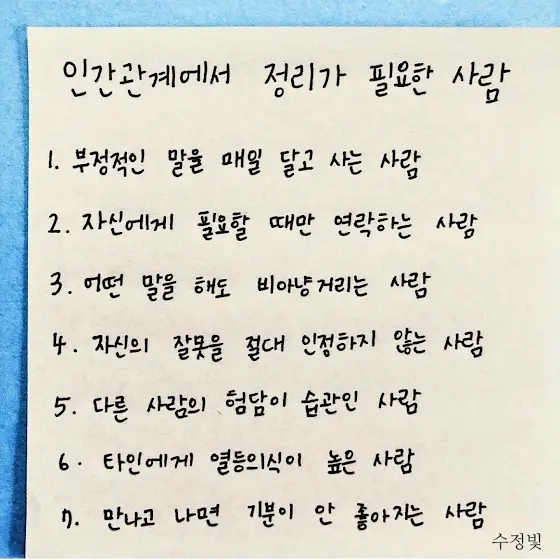 인간관계에서 정리가 필요한 사람
1. 부정적인 말을 매일 달고 사는 사람
2. 자신에게 필요할 때만 연락하는 사람
3. 어떤 말을 해도 비아냥거리는 사람
4. 자신의 잘못을 절대 인정하지 않는 사람
5. 다른 사람의 험담이 습관인 사람
6. 타인에게 열등의식이 높은 사람
7. 만나고 나면 기분이 안 좋아지는 사람
수정빛